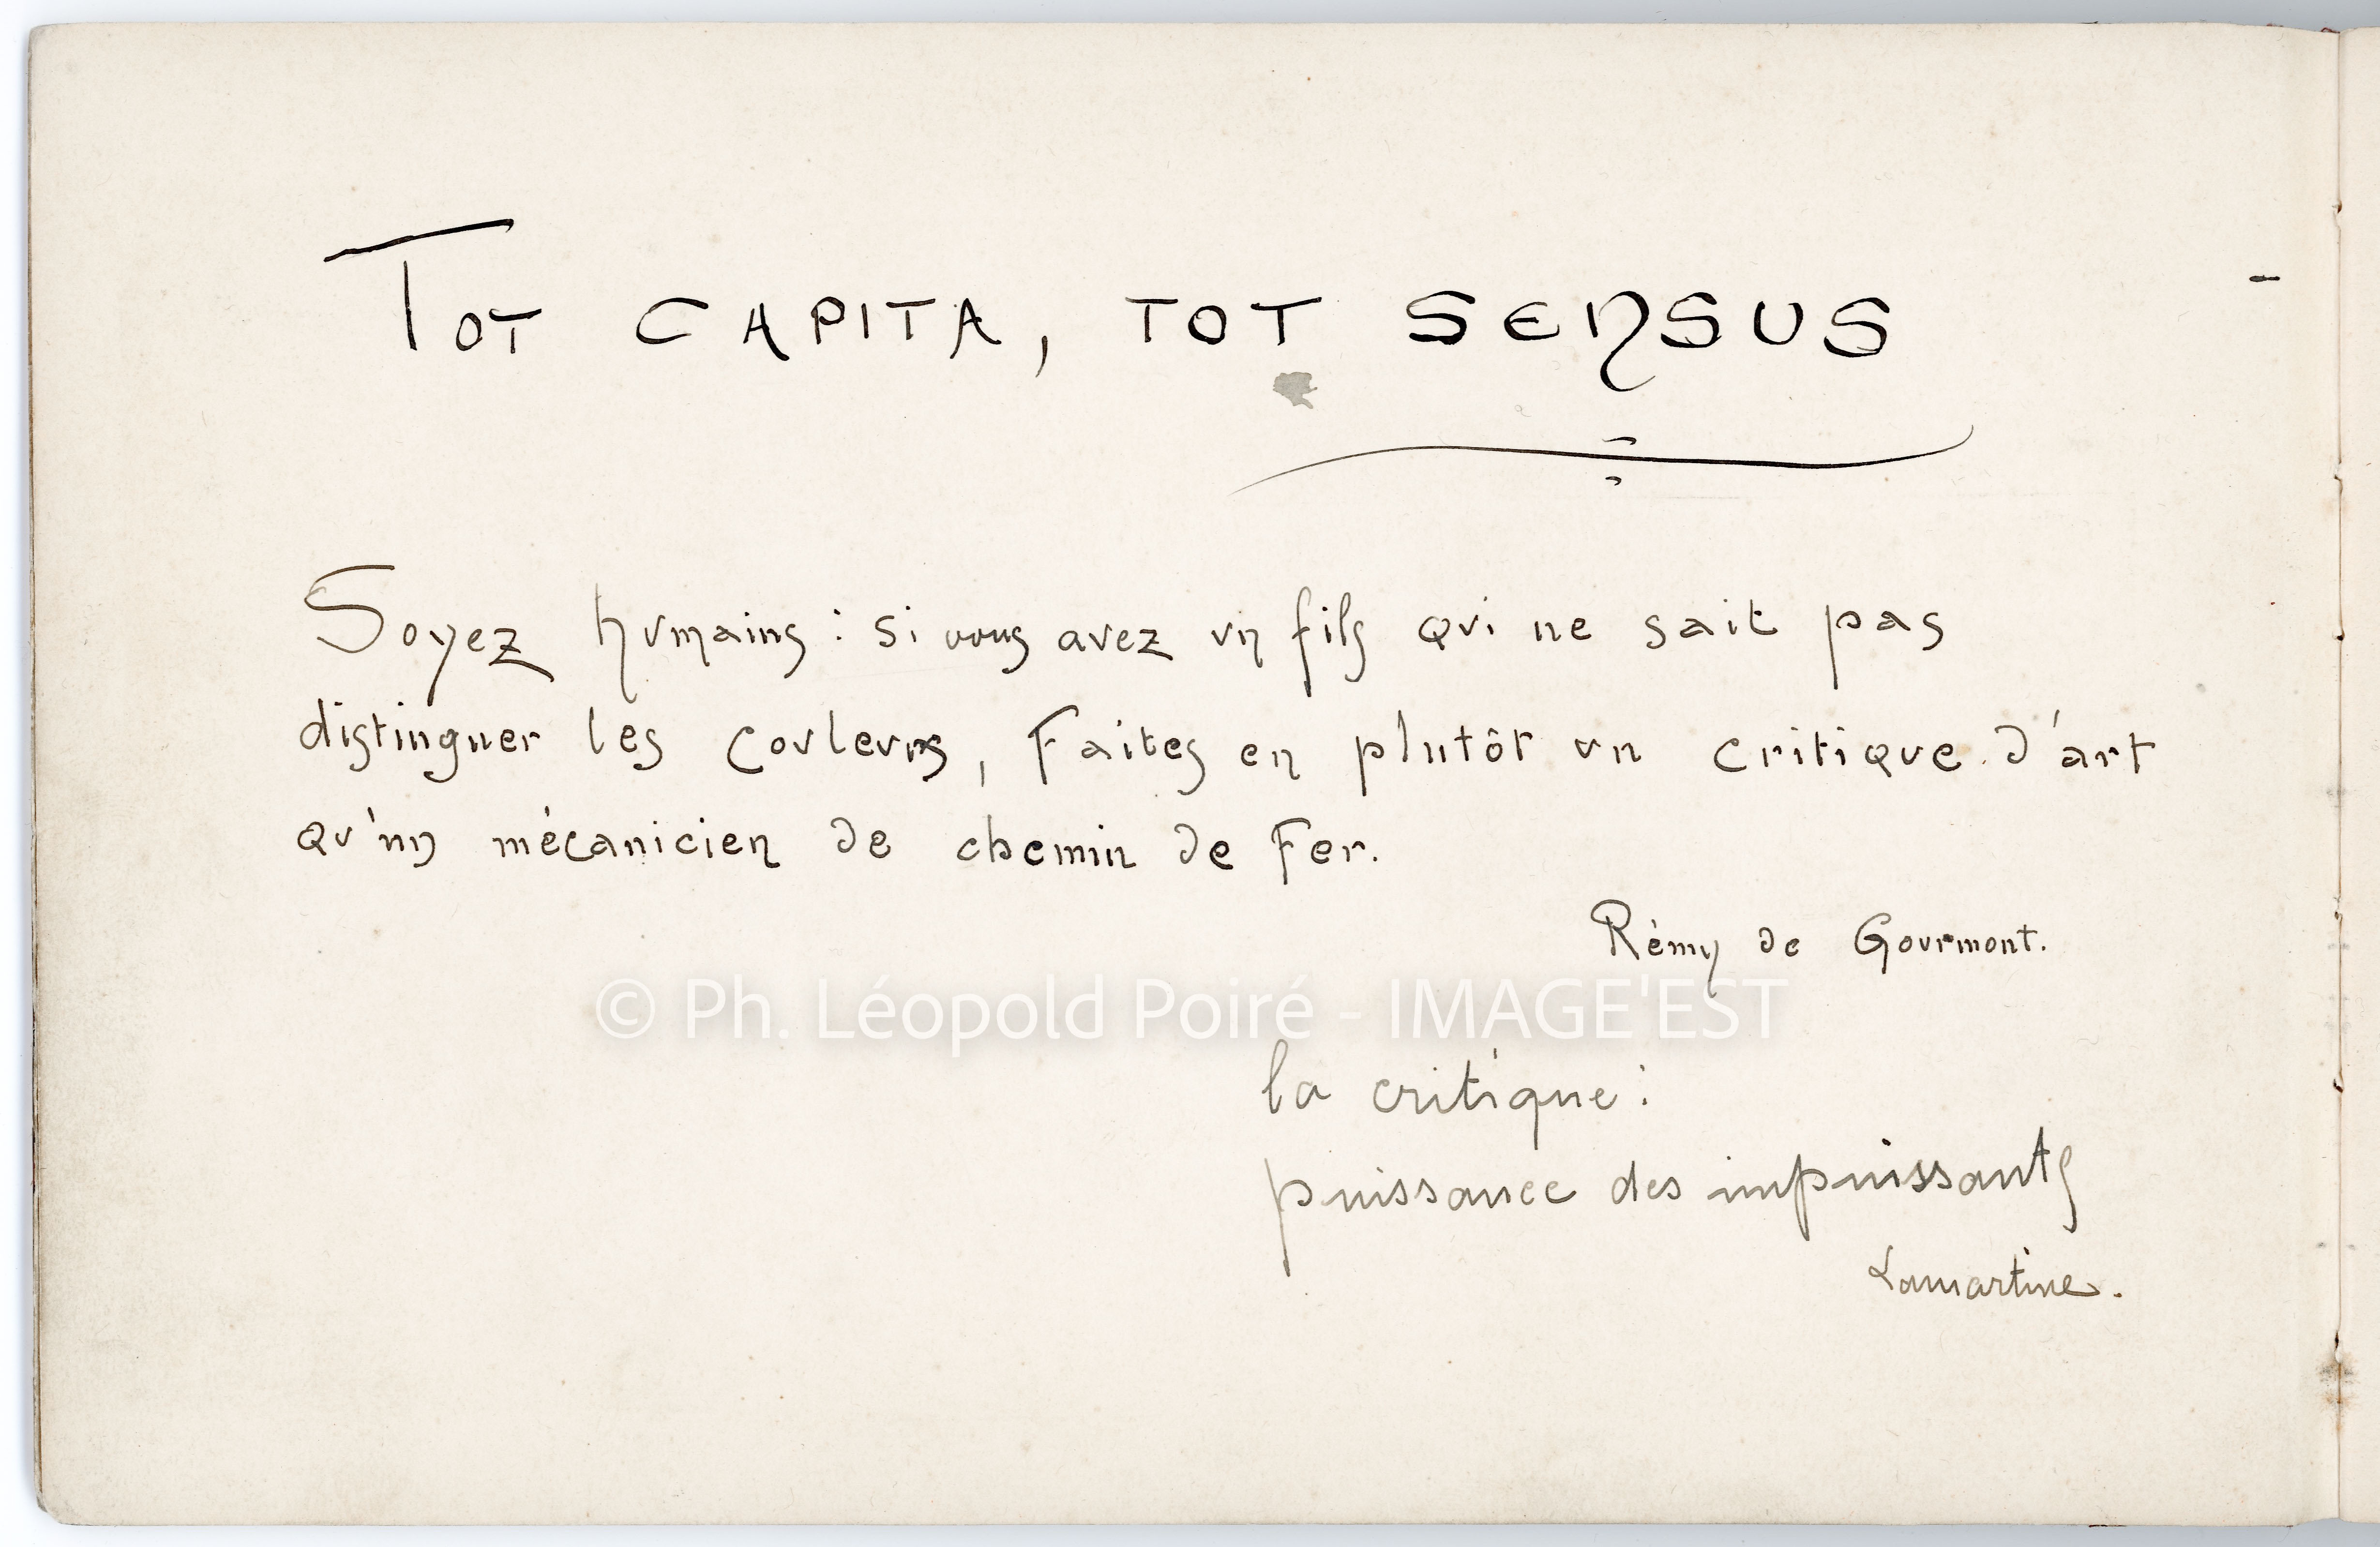 Tot capita, tot sensus
Soyez humains : si vous avez un fils qui ne sait pas
distinguer les couleurs, Faites en plutôt un critique d'art
qu'un mécanicien de chemin de Fer.
Rémy de Gourmont.
© Ph. Léopold Poiré - IMAGE'EST
la critique :
puissance des impuissants
Lamartine.